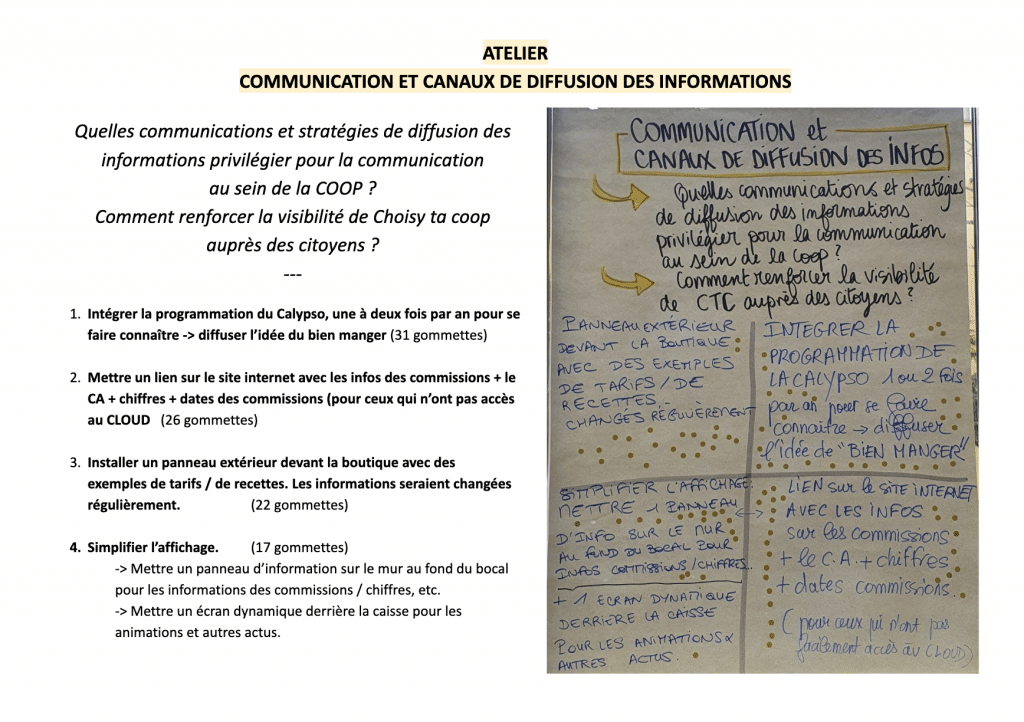 ATELIER
COMMUNICATION ET CANAUX DE DIFFUSION DES INFORMATIONS
Quelles communications et stratégies de diffusion des
informations privilégier pour la communication
au sein de la COOP ?
Comment renforcer la visibilité de Choisy ta coop
auprès des citoyens ?
---
1. Intégrer la programmation du Calypso, une à deux fois par an pour se
faire connaître -> diffuser l’idée du bien manger (31 gommettes)
2. Mettre un lien sur le site internet avec les infos des commissions + le
CA + chiffres + dates des commissions (pour ceux qui n’ont pas accès
au CLOUD (26 gommettes)
3. Installer un panneau extérieur devant la boutique avec des
exemples de tarifs / de recettes. Les informations seraient changées
régulièrement. (22 gommettes)
4. Simplifier l’affichage. (17 gommettes)
-> Mettre un panneau d’information sur le mur au fond du bocal
pour les informations des commissions / chiffres, etc.
-> Mettre un écran dynamique derrière la caisse pour les
animations et autres actus.
COMMUNICATION et
CANAUX DE DIFFUSION DES INFOS
Quelles communications et stratégies
de diffusion des informations
privilégier pour la communication
au sein de la coop ?
Comment renforcer la visibilité
de CTC auprès des citoyens ?
PANNEAU EXTERIEUR
DEVANT LA BOUTIQUE
AVEC DES EXEMPLES
DE TARIFS / DE
RECETTES,
CHANGÉS RÉGULIÈREMENT
INTEGRER LA
PROGRAMMATION DE
LA CALYPSO 1 ou 2 fois
par an pour se faire
connaitre → diffuser
l'idée de "BIEN MANGER"
SIMPLIFIER L'AFFICHAGE.
METTRE 1 PANNEAU
D'INFO SUR LE MUR
AU FOND DU BOCAL POUR
INFOS COMMISSIONS / CHIFFRES..
+ 1 ECRAN DYNAMIQUE
DERRIERE LA CAISSE
POUR LES ANIMATIONS &
AUTRES ACTUS.
LIEN sur le SITE INTERNET
AVEC LES INFOS
sur les commissions
+ le C.A. + chiffres
+ dates commissions.
( pour ceux qui n'ont pas
facilement accès au CLOUD)